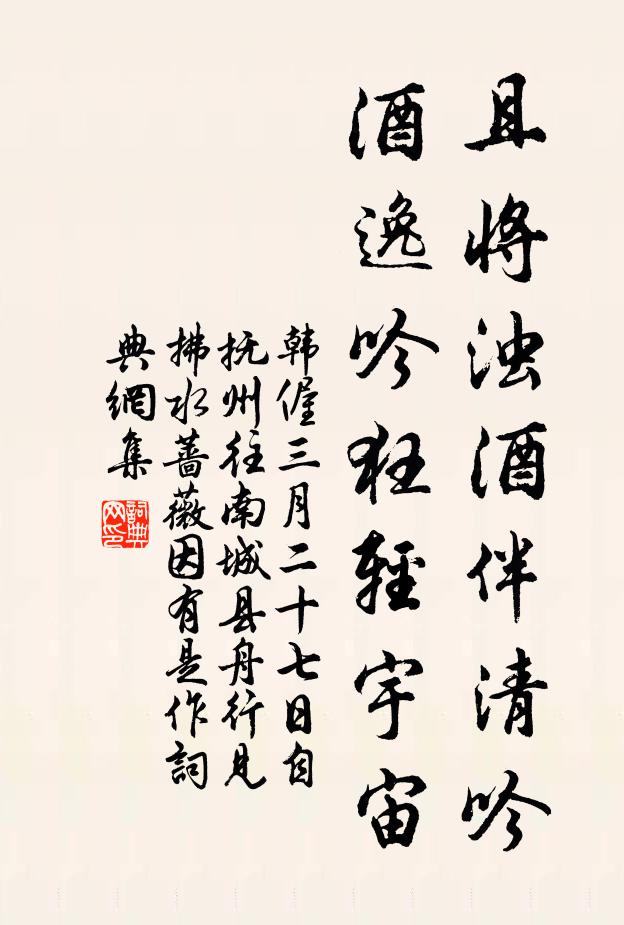 且将浊酒伴清吟
酒逸吟狂轻宇宙
韩偓三月二十七日自
抚州往南城县舟行见
拂水蔷薇因有是作詞
典網集
詞典网印